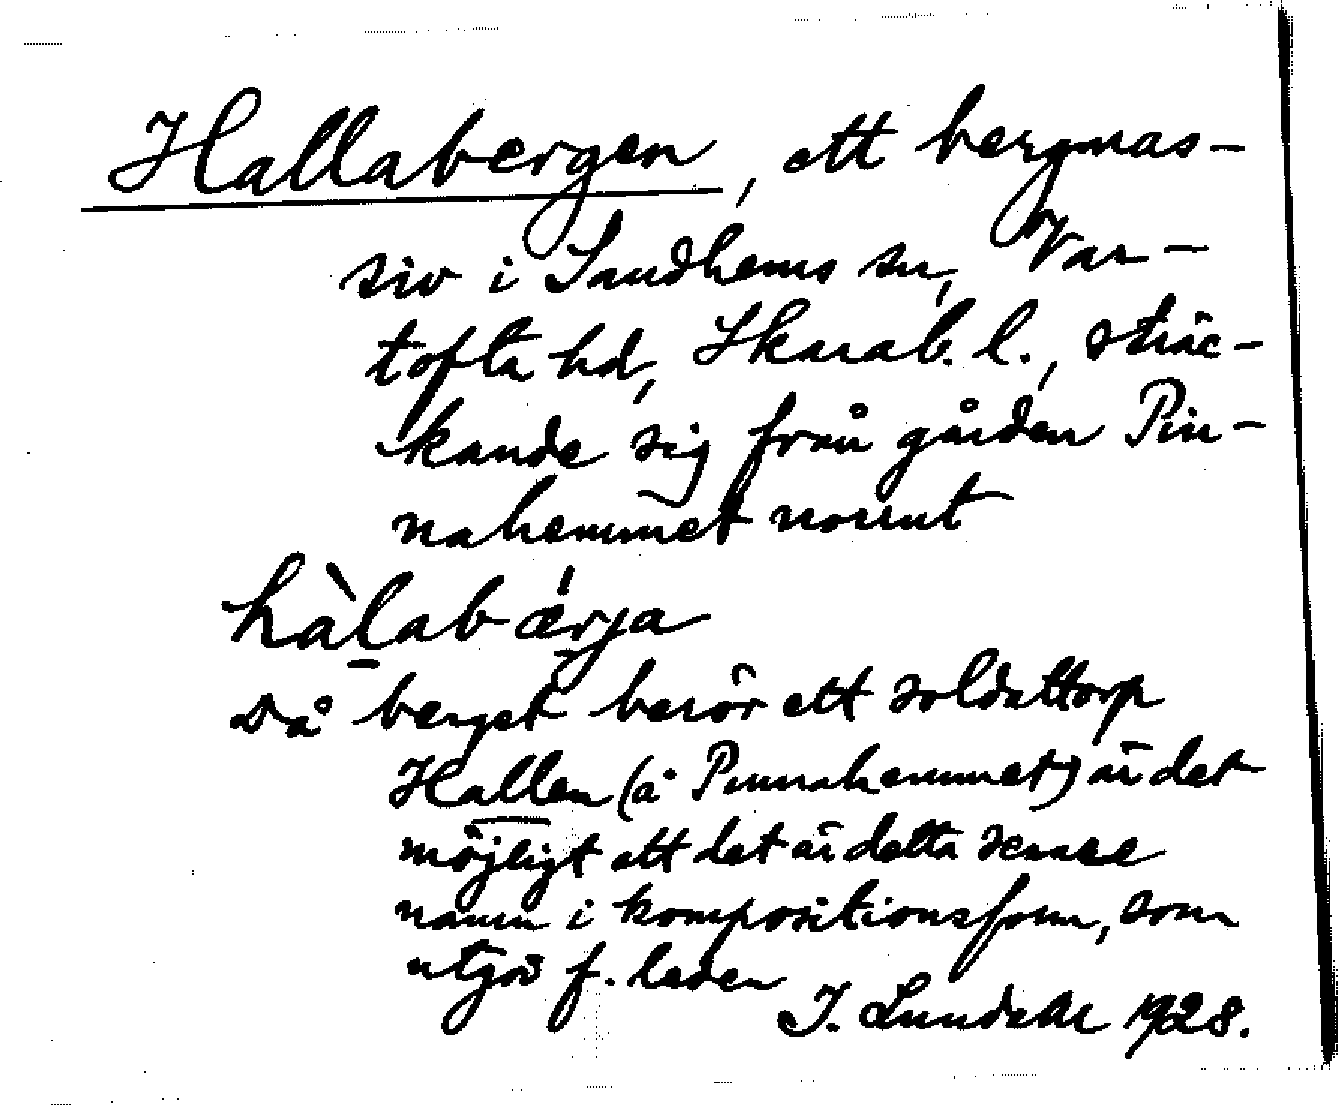 Hallabergen, ett bergmas-
siv i Sandhems sn, Var-
tofta hd, Skarab. l., sträc-
kande sig från gården Pin-
nahemmet norrut
hàlabǽrja
Då berget berör ett soldattorp
Hallen (å Pinnahemmet) är det
möjligt att det är detta senare
namn i kompositionsform, som
utgör f. leden
I. Lundahl 1928.